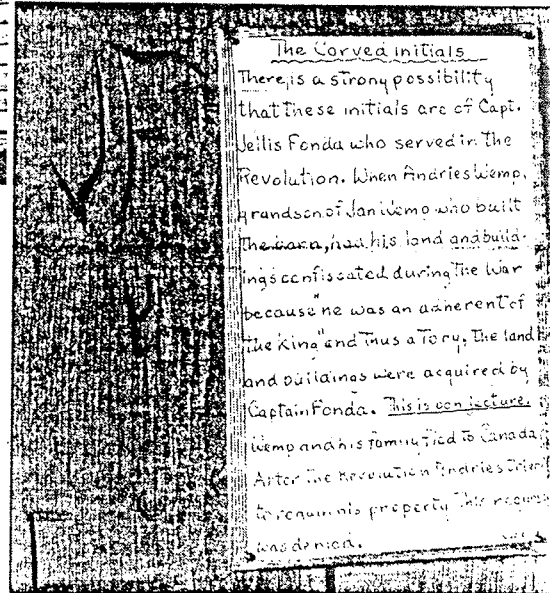 The Carved initials
There is a strong possibility
that these initials are of Capt.
Jeilis Fonda who served in the
Revolution. When Andries Wemp,
grandson of Jan Wemp who built
the barn, had his land and build-
ings confiscated during the War
because "he was an adherent of
the King" and thus a Tory, the land
and buildings were acquired by
Captain Fonda. This is conjecture.
Wemp and his family fled to Canada.
After the Revolution Andries tried
to regain his property This request
was denied.